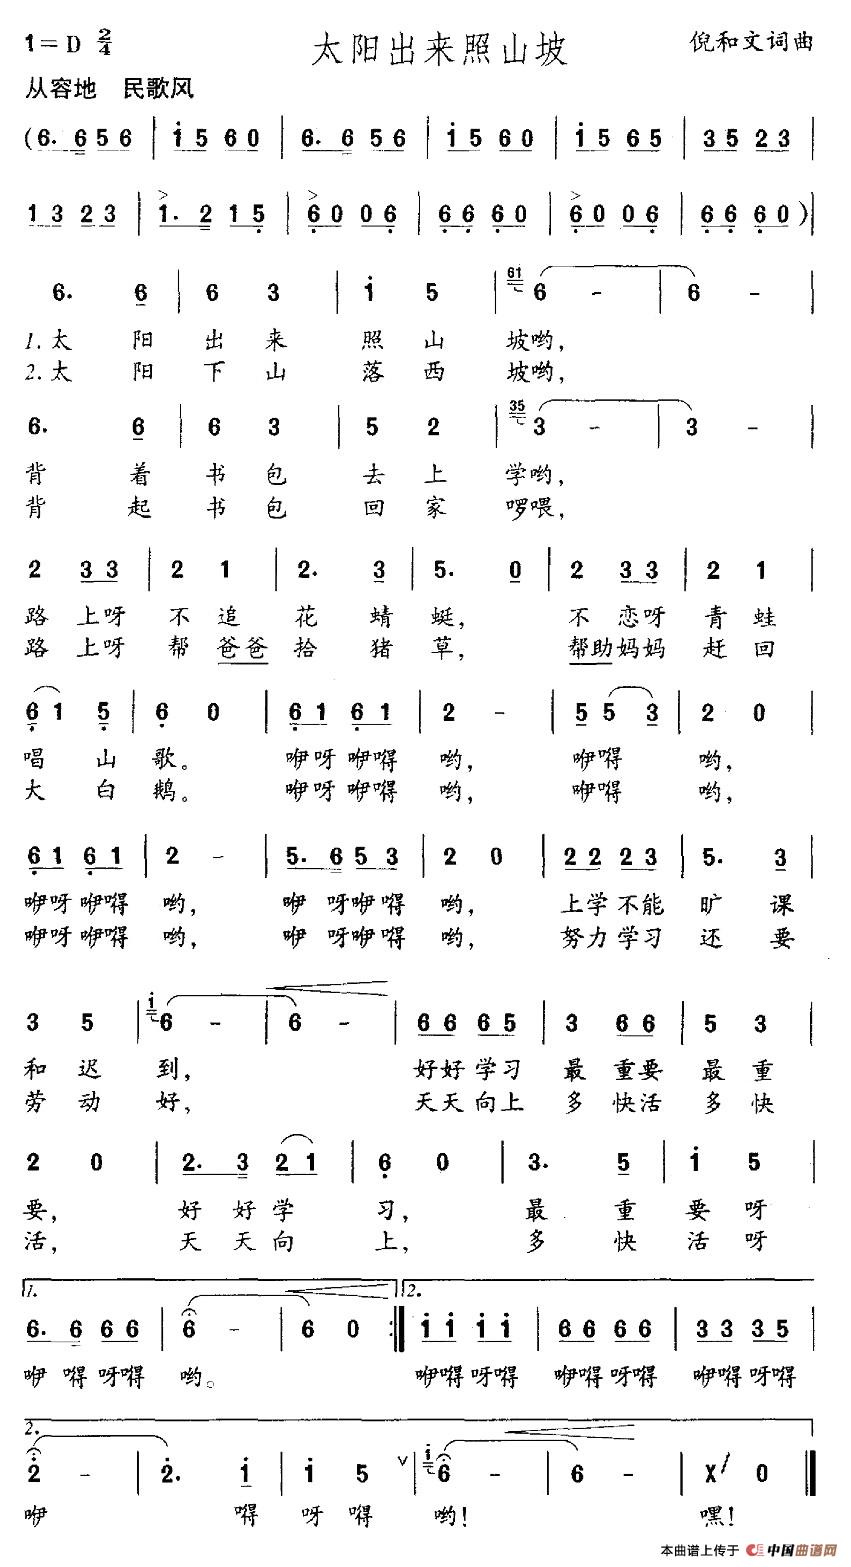 1=D 2/4 太阳出来照山坡 倪和文词曲
从容地 民歌风
(6. 6 5 6 | i 5 6 0 | 6. 6 5 6 | i 5 6 0 | i 5 6 5 | 3 5 2 3 |
1 3 2 3 | 1. 2 1 5 | 6 0 0 6 | 6 6 6 0 | 6 0 0 6 | 6 6 6 0 )|
6. 6 | 6 3 | i 5 | 61 6 - | 6 - |
1.太 阳 出 来 照 山 坡哟,
2.太 阳 下 山 落 西 坡哟,
6. 6 | 6 3 | 5 2 | 35 3 - | 3 - |
背 着 书 包 去 上 学哟,
背 起 书 包 回 家 啰喂,
2 3 3 | 2 1 | 2. 3 | 5. 0 | 2 3 3 | 2 1 |
路 上呀 不 追 花 蜻 蜓, 不 恋呀 青 蛙
路 上呀 帮 爸爸 拾 猪 草, 帮助妈妈 赶 回
6 1 5 | 6 0 | 6 1 6 1 | 2 - | 5 5 3 | 2 0 |
唱 山 歌。 咿呀 咿嘚 哟, 咿嘚 哟,
大 白 鹅。 咿呀 咿嘚 哟, 咿嘚 哟,
6 1 6 1 | 2 - | 5. 6 5 3 | 2 0 | 2 2 2 3 | 5. 3 |
咿呀 咿嘚 哟, 咿 呀咿嘚 哟, 上学 不能 旷 课
咿呀 咿嘚 哟, 咿 呀咿嘚 哟, 努力 学习 还 要
3 5 | i 6 - | 6 - | 6 6 6 5 | 3 6 6 | 5 3 |
和 迟 到, 好好 学习 最 重要 最 重
劳 动 好, 天天 向上 多 快活 多 快
2 0 | 2. 3 2 1 | 6 0 | 3. 5 | i 5 |
要, 好 好 学 习, 最 重 要 呀
活, 天 天 向 上, 多 快 活 呀
1. 2.
6. 6 6 6 | 6 - | 6 0 :| i i i i | 6 6 6 6 | 3 3 3 5 |
咿 嘚 呀嘚 哟。 咿嘚 呀嘚 咿嘚 呀嘚 咿嘚 呀嘚
2.
2 - | 2. i | i 5 ∨ | i 6 - | 6 - | X 0 ‖
咿 嘚 呀 嘚 哟! 嘿!
本曲谱上传于 中国曲谱网